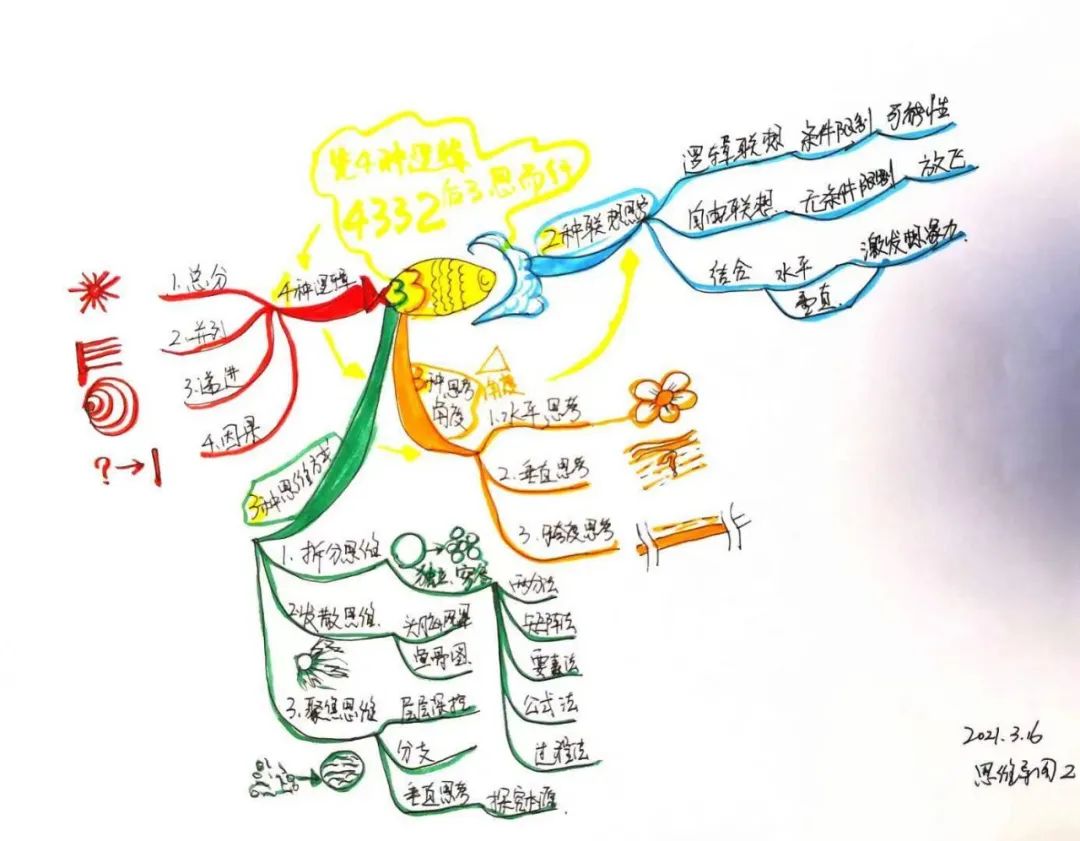 先4种逻辑
4332后3.思而行
3
4种逻辑
1.总分
2.并列
3.递进
4.因果
?→1
2种联想思维
逻辑联想 条件限制 可能性
自由联想 无条件限制 放飞
结合 水平 激发想象力
垂直
3种思考
角度
角度
1.水平思考
2.垂直思考
?
3.跨度思考
3种思维方式
1.拆分思维
独立.穷尽
两分法
矩阵法
要素法
公式法
过程法
2.发散思维
头脑风暴
鱼骨图
3.聚焦思维
层层深挖
分支
垂直思考 探究本源
2021.3.16
思维导图2